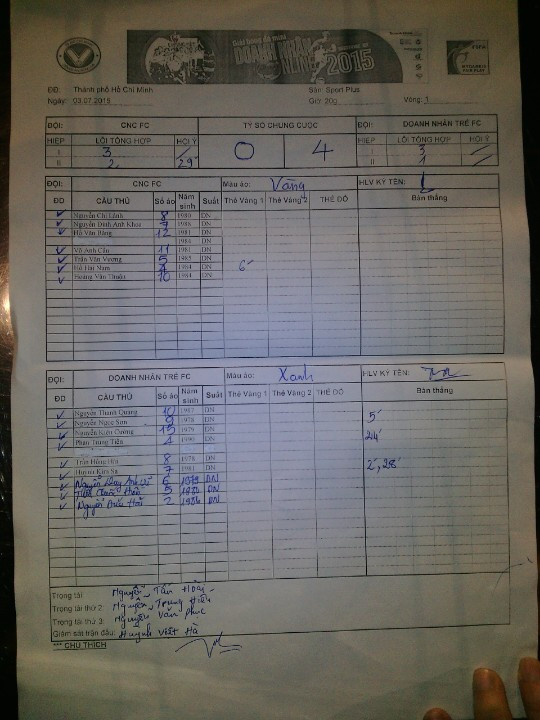 Giải bóng đá mini
DOANH NHÂN
2015
FAIR PLAY
ĐĐ: Thành phố Hồ Chí Minh Sân: Sport Plus
Ngày: 03.07.2015 Giờ: 20g Vòng: 1
ĐỘI: CNC FC TỶ SỐ CHUNG CUỘC ĐỘI: DOANH NHÂN TRẺ FC
HIỆP LỖI TỔNG HỢP HỘI Ý 0 4 HIỆP LỖI TỔNG HỢP HỘI Ý
I 3 I 3
II 2 29' II 1
ĐỘI: CNC FC Màu áo: Vàng HLV KÝ TÊN:
ĐD CẦU THỦ Số áo Năm sinh Suất Thẻ Vàng 1 Thẻ Vàng 2 THẺ ĐỎ Bàn thắng
Nguyễn Chí Lãnh 8 1980 DN
Nguyễn Đình Anh Khoa 1986 DN
Hồ Văn Bằng 12 1981 DN
1984 DN
Võ Anh Cầu 11 1981 DN
Trần Văn Vương 5 1985 DN
Hồ Hải Nam 1984 DN 6'
Hoàng Văn Thuận 10 1984 DN
ĐỘI: DOANH NHÂN TRẺ FC Màu áo: Xanh HLV KÝ TÊN:
ĐD CẦU THỦ Số áo Năm sinh Suất Thẻ Vàng 1 Thẻ Vàng 2 THẺ ĐỎ Bàn thắng
Nguyễn Thanh Quang 10 1987 DN 5'
Nguyễn Ngọc Sơn 9 1978 DN
Nguyễn Kiên Cường 15 1979 DN 24'
Phan Trung Tiến 4 1990 DN
Trần Hồng 8 1978 DN
Huỳnh Kim Sa 7 1981 DN 2', 28'
Nguyễn Anh 6 1979 DN
5 DN
Nguyễn Hải 2 1984 DN
Trọng tài Nguyễn Tấn Hoài
Trọng tài thứ 2: Nguyễn Trung Hiếu
Trọng tài thứ 3: Nguyễn Văn Phúc
Giám sát trận đấu: Huỳnh Viết Hà
*** CHÚ THÍCH